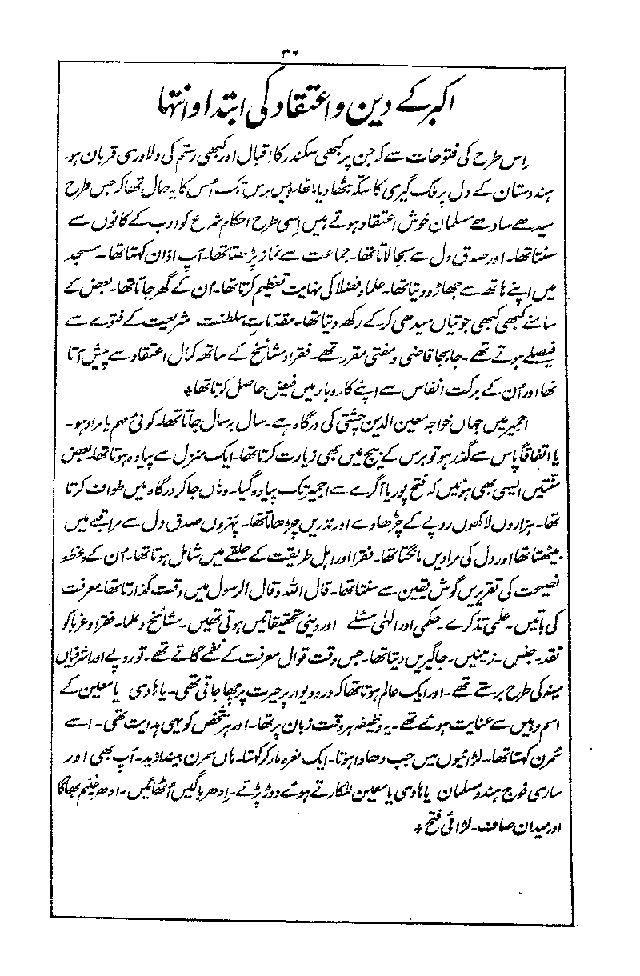 ۳۶
اکبر کے دین و اعتقاد کی ابتدا و انتہا
اِس طرح کی فتوحات سے کہ جن پر کبھی سکندر کا اقبال اور کبھی رستم کی دلاوری قربان ہو۔
ہندوستان کے دل پر ملک گیری کا سکہ بٹھا دیا۔ اٹھارہ بیس برس تک اُس کا یہ حال تھا کہ جس طرح
سیدھے سادھے مسلمان خوش اعتقاد ہوتے ہیں اِسی طرح احکام شرع کو ادب کے کانوں سے
سنتا تھا۔ اور صدق دل سے بجا لاتا تھا۔ جماعت سے نماز پڑھتا تھا۔ آپ اذان کہتا تھا۔ مسجد
میں اپنے ہاتھ سے جھاڑو دیتا تھا۔ علما و فضلا کی نہایت تعظیم کرتا تھا۔ ان کے گھر جاتا تھا۔ بعض کے
سامنے کبھی کبھی جوتیاں سیدھی کر کے رکھ دیتا تھا۔ مقدمات سلطنت شریعت کے فتوے سے
فیصلے ہوتے تھے۔ جابجا قاضی و مفتی مقرر تھے۔ فقرا و مشائخ کے ساتھ کمال اعتقاد سے پیش آتا
تھا اور اُن کے برکت انفاس سے اپنے کاروبار میں فیض حاصل کرتا تھا۔
اجمیر میں جہاں خواجہ معین الدین چشتی کی درگاہ ہے۔ سال بسال جاتا تھا۔ کوئی مہم یا مراد ہو۔
یا اتفاقاً پاس سے گذر ہو تو برس کے بیچ میں بھی زیارت کرتا تھا۔ ایک منزل سے پیادہ ہوتا تھا۔ بعض
منتیں ایسی بھی ہوئیں کہ فتح پور یا آگرے سے اجمیر تک پیادہ گیا۔ وہاں جا کر درگاہ میں طواف کرتا
تھا۔ ہزاروں لاکھوں روپے کے چڑھاوے اور نذریں چڑھاتا تھا۔ پہروں صدق دل سے مراقبے میں
بیٹھتا تھا اور دل کی مرادیں مانگتا تھا۔ فقرا اور اہل طریقت کے حلقے میں شامل ہوتا تھا۔ ان کے وعظ و
نصیحت کی تقریریں گوش یقین سے سنتا تھا۔ قال اللہ و قال الرسول میں وقت گذارتا تھا۔ معرفت
کی باتیں۔ علمی تذکرے۔ حکمی اور الہٰی مسئلے اور دینی تحقیقاتیں ہوتی تھیں۔ مشائخ و علما۔ فقرا و غربا کو
نقد۔ جنس۔ زمینیں۔ جاگیریں دیتا تھا۔ جس وقت قوال معرفت کے نغمے گاتے تھے۔ تو روپے اور اشرفیاں
مینہ کی طرح برستے تھے۔ اور ایک عالم ہوتا تھا کہ در و دیوار پر حیرت چھا جاتی تھی۔ یا ہادی یا معین کے
اسم وہیں سے عنایت ہوئے تھے۔ یہ وظیفہ ہر وقت زبان پر تھا۔ اور ہر شخص کو یہی ہدایت تھی۔ اسے
سمرن کہتا تھا۔ لڑائیوں میں جب دھاوا ہوتا۔ ایک نعرہ مار کر کہتا۔ ہاں سمرن بیندازید۔ آپ بھی اور
ساری فوج ہندو مسلمان یا ہادی یا معین للکارتے ہوئے دوڑ پڑتے۔ اِدھر باگیں اُٹھائیں۔ اِدھر غنیم بھاگا
اور میدان صاف۔ لڑائی فتح۔